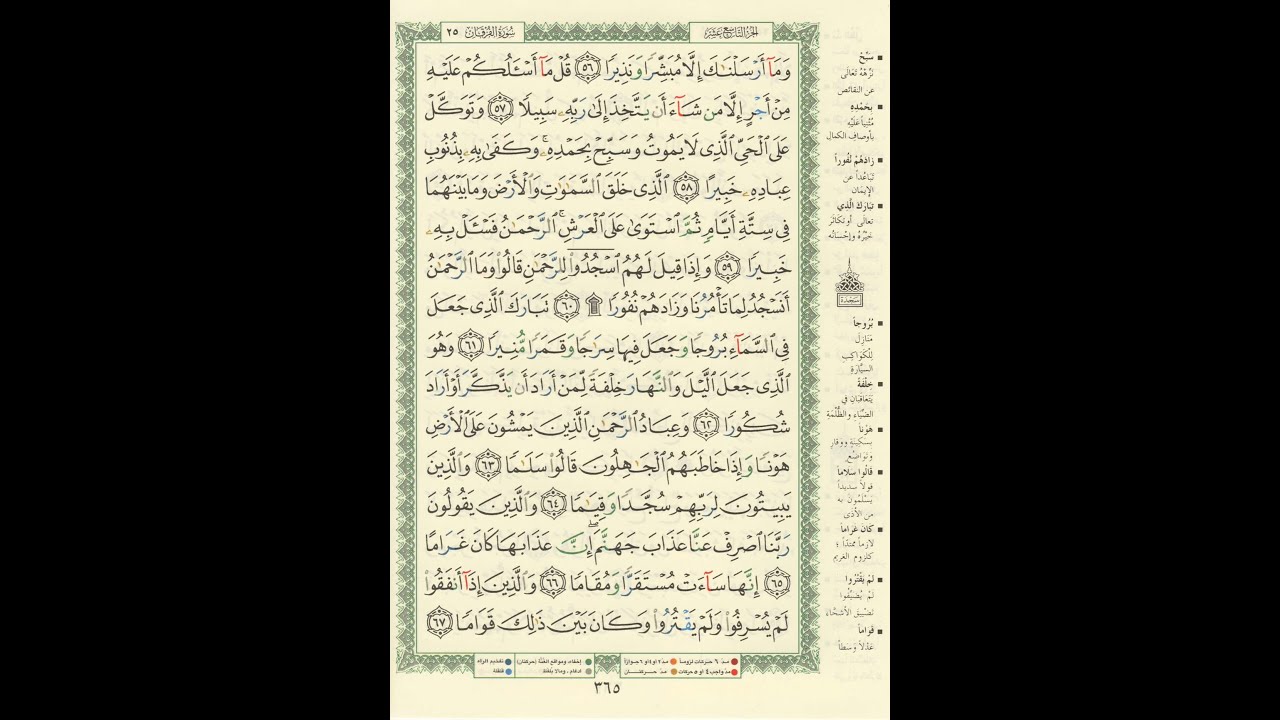 سُورَةُ الفُرْقَانِ ٢٥
الجُزْءُ التَّاسِعَ عَشَرَ
وَمَآ أَرْسَلْنَٰكَ إِلَّا مُبَشِّرًا وَنَذِيرًا ٥٦ قُلْ مَآ أَسْـَٔلُكُمْ عَلَيْهِ
مِنْ أَجْرٍ إِلَّا مَن شَآءَ أَن يَتَّخِذَ إِلَىٰ رَبِّهِۦ سَبِيلًا ٥٧ وَتَوَكَّلْ
عَلَى ٱلْحَيِّ ٱلَّذِى لَا يَمُوتُ وَسَبِّحْ بِحَمْدِهِۦ ۚ وَكَفَىٰ بِهِۦ بِذُنُوبِ
عِبَادِهِۦ خَبِيرًا ٥٨ ٱلَّذِى خَلَقَ ٱلسَّمَٰوَٰتِ وَٱلْأَرْضَ وَمَا بَيْنَهُمَا
فِى سِتَّةِ أَيَّامٍ ثُمَّ ٱسْتَوَىٰ عَلَى ٱلْعَرْشِ ۚ ٱلرَّحْمَٰنُ فَسْـَٔلْ بِهِۦ
خَبِيرًا ٥٩ وَإِذَا قِيلَ لَهُمُ ٱسْجُدُوا۟ لِلرَّحْمَٰنِ قَالُوا۟ وَمَا ٱلرَّحْمَٰنُ
أَنَسْجُدُ لِمَا تَأْمُرُنَا وَزَادَهُمْ نُفُورًا ۩ ٦٠ تَبَارَكَ ٱلَّذِى جَعَلَ
فِى ٱلسَّمَآءِ بُرُوجًا وَجَعَلَ فِيهَا سِرَٰجًا وَقَمَرًا مُّنِيرًا ٦١ وَهُوَ
ٱلَّذِى جَعَلَ ٱلَّيْلَ وَٱلنَّهَارَ خِلْفَةً لِّمَنْ أَرَادَ أَن يَذَّكَّرَ أَوْ أَرَادَ
شُكُورًا ٦٢ وَعِبَادُ ٱلرَّحْمَٰنِ ٱلَّذِينَ يَمْشُونَ عَلَى ٱلْأَرْضِ
هَوْنًا وَإِذَا خَاطَبَهُمُ ٱلْجَٰهِلُونَ قَالُوا۟ سَلَٰمًا ٦٣ وَٱلَّذِينَ
يَبِيتُونَ لِرَبِّهِمْ سُجَّدًا وَقِيَٰمًا ٦٤ وَٱلَّذِينَ يَقُولُونَ
رَبَّنَا ٱصْرِفْ عَنَّا عَذَابَ جَهَنَّمَ ۖ إِنَّ عَذَابَهَا كَانَ غَرَامًا
٦٥ إِنَّهَا سَآءَتْ مُسْتَقَرًّا وَمُقَامًا ٦٦ وَٱلَّذِينَ إِذَآ أَنفَقُوا۟
لَمْ يُسْرِفُوا۟ وَلَمْ يَقْتُرُوا۟ وَكَانَ بَيْنَ ذَٰلِكَ قَوَامًا ٦٧
سَبِّحْ
نَزِّهْهُ تَعَالَى
عن النقائص
بِحَمْدِهِ
مُثْنِياً عَلَيْهِ
بأوصافِ الكمال
زَادَهُمْ نُفُوراً
تَبَاعُداً عن
الإيمَانِ
تَبَارَكَ الَّذِي
تعالى أو تكاثَرَ
خَيْرُهُ وإحْسَانُه
سَجْدَة
بُرُوجاً
مَنَازِلَ
لِلْكَوَاكِبِ
السيَّارَةِ
خِلْفَةً
يَتَعَاقَبَانِ في
الضِّيَاءِ والظُّلْمَةِ
هَوْناً
بسَكِينَةٍ ووَقارٍ
وتَوَاضُعٍ
قَالُوا سَلاماً
قَوْلاً سَدِيداً
يَسْلَمُونَ به
من الأذَى
كَانَ غَرَاماً
لازِماً مُمْتَدّاً ؛
كلزوم الغريم
لَمْ يَقْتُرُوا
لَمْ يُضَيِّقُوا
تَضْيِيقَ الأشحَّاءِ
قَوَاماً
عَدْلاً وَسَطاً
مدّ ٦ حركات لزوماً
مدّ ٢ أو ٤ أو ٦ جوازاً
إخفاء، ومواقع الغُنَّة (حركتان)
تفخيم الراء
مدّ واجب ٤ أو ٥ حركات
مدّ حركتان
إدغام، وما لا يُلفظ
قلقلة
٣٦٥